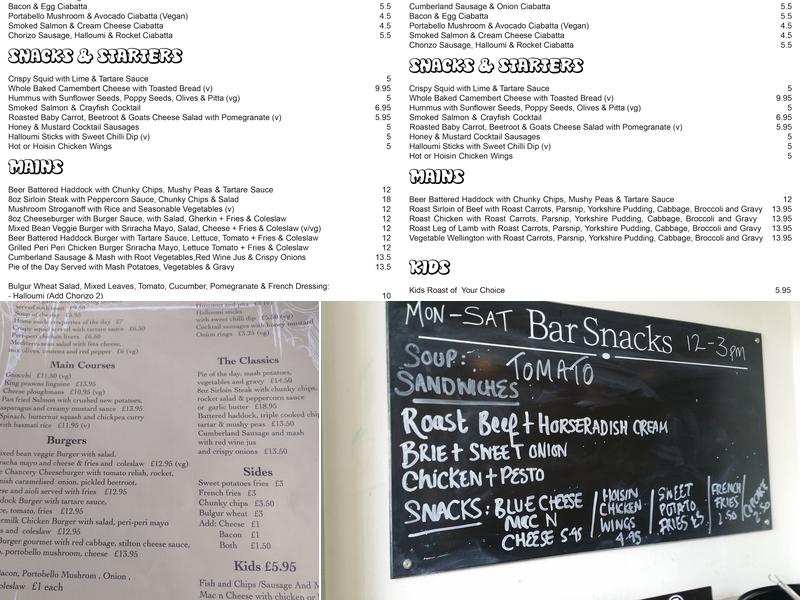 Bacon & Egg Ciabatta 5.5
Portabello Mushroom & Avocado Ciabatta (Vegan) 4.5
Smoked Salmon & Cream Cheese Ciabatta 4.5
Chorizo Sausage, Halloumi & Rocket Ciabatta 5.5
SNACKS & STARTERS
Crispy Squid with Lime & Tartare Sauce 5
Whole Baked Camembert Cheese with Toasted Bread (v) 9.95
Hummus with Sunflower Seeds, Poppy Seeds, Olives & Pitta (vg) 5
Smoked Salmon & Crayfish Cocktail 6.95
Roasted Baby Carrot, Beetroot & Goats Cheese Salad with Pomegranate (v) 5.95
Honey & Mustard Cocktail Sausages 5
Halloumi Sticks with Sweet Chilli Dip (v) 5
Hot or Hoisin Chicken Wings 5
MAINS
Beer Battered Haddock with Chunky Chips, Mushy Peas & Tartare Sauce 12
8oz Sirloin Steak with Peppercorn Sauce, Chunky Chips & Salad 18
Mushroom Stroganoff with Rice and Seasonable Vegetables (v) 12
8oz Cheeseburger with Burger Sauce, with Salad, Gherkin + Fries & Coleslaw 12
Mixed Bean Veggie Burger with Sriracha Mayo, Salad, Cheese + Fries & Coleslaw (v/vg) 12
Beer Battered Haddock Burger with Tartare Sauce, Lettuce, Tomato + Fries & Coleslaw 12
Grilled Peri Peri Chicken Burger Sriracha Mayo, Lettuce Tomato + Fries & Coleslaw 12
Cumberland Sausage & Mash with Root Vegetables,Red Wine Jus & Crispy Onions 13.5
Pie of the Day Served with Mash Potatoes, Vegetables & Gravy 13.5
Bulgur Wheat Salad, Mixed Leaves, Tomato, Cucumber, Pomegranate & French Dressing:
- Halloumi (Add Chorizo 2) 10
Cumberland Sausage & Onion Ciabatta 5.5
Bacon & Egg Ciabatta 5.5
Portabello Mushroom & Avocado Ciabatta (Vegan) 4.5
Smoked Salmon & Cream Cheese Ciabatta 4.5
Chorizo Sausage, Halloumi & Rocket Ciabatta 5.5
SNACKS & STARTERS
Crispy Squid with Lime & Tartare Sauce 5
Whole Baked Camembert Cheese with Toasted Bread (v) 9.95
Hummus with Sunflower Seeds, Poppy Seeds, Olives & Pitta (vg) 5
Smoked Salmon & Crayfish Cocktail 6.95
Roasted Baby Carrot, Beetroot & Goats Cheese Salad with Pomegranate (v) 5.95
Honey & Mustard Cocktail Sausages 5
Halloumi Sticks with Sweet Chilli Dip (v) 5
Hot or Hoisin Chicken Wings 5
MAINS
Beer Battered Haddock with Chunky Chips, Mushy Peas & Tartare Sauce 12
Roast Sirloin of Beef with Roast Carrots, Parsnip, Yorkshire Pudding, Cabbage, Broccoli and Gravy 13.95
Roast Chicken with Roast Carrots, Parsnip, Yorkshire Pudding, Cabbage, Broccoli and Gravy 13.95
Roast Leg of Lamb with Roast Carrots, Parsnip, Yorkshire Pudding, Cabbage, Broccoli and Gravy 13.95
Vegetable Wellington with Roast Carrots, Parsnip, Yorkshire Pudding, Cabbage, Broccoli and Gravy 13.95
KIDS
Kids Roast of Your Choice 5.95
Soup of the day £5.95
Home made croquettes of the day £7
Crispy squid served with tartare sauce £6.50
Peri-peri chicken livers £6.50
Mediterranean salad with feta cheese,
mix olives, onions and red pepper £6 (vg)
Main Courses
Gnocchi £11.50 (vg)
King prawns linguine £13.95
Cheese ploughmans £10.95 (vg)
Pan fried Salmon with crushed new potatoes,
asparagus and creamy mustard sauce £13.95
Spinach, butternut squash and chickpea curry
with basmati rice £11.95 (v)
Burgers
ixed bean veggie Burger with salad,
racha mayo and cheese & fries and coleslaw £12.95 (vg)
e Chancery Cheeseburger with tomato relish, rocket,
nish caramelised onion, pickled beetroot,
ese and aioli served with fries £12.95
ddock Burger with tartare sauce,
ce, tomato, fries £12.95
ermilk Chicken Burger with salad, peri-peri mayo
s and coleslaw £12.95
Burger gourmet with red cabbage, stilton cheese sauce,
, portobello mushroom, cheese £13.95
acon, Portobello Mushrom , Onion ,
oleslaw £1 each
Halloumi sticks
with sweet chilli dip £5.50 (vg)
Cocktail sausages with honey mustard
Onion rings £3.25 (vg)
The Classics
Pie of the day, mash potatoes,
vegetables and gravy £14.50
8oz Sirloin Steak with chunky chips,
rocket salad & peppercorn sauce
or garlic butter £18.95
Battered haddock, triple cooked chip
tartar & mushy peas £13.50
Cumberland Sausage and mash
with red wine jus
and crispy onions £13.50
Sides
Sweet potatoes fries £3
French fries £3
Chunky chips £3.50
Bulgur wheat £3
Add: Cheese £1
Bacon £1
Both £1.50
Kids £5.95
Fish and Chips /Sausage And M
Mac n Cheese with chicken or
MON-SAT Bar Snacks 12-3pm
SOUP: TOMATO
SANDWICHES
Roast Beef + HORSERADISH CREAM
BRIE + SWEET ONION
CHICKEN + PESTO
SNACKS: BLUE CHEESE MAC N CHEESE 5.95
HOISIN CHICKEN WINGS 4.95
SWEET POTATO FRIES £3
FRENCH FRIES 2.50